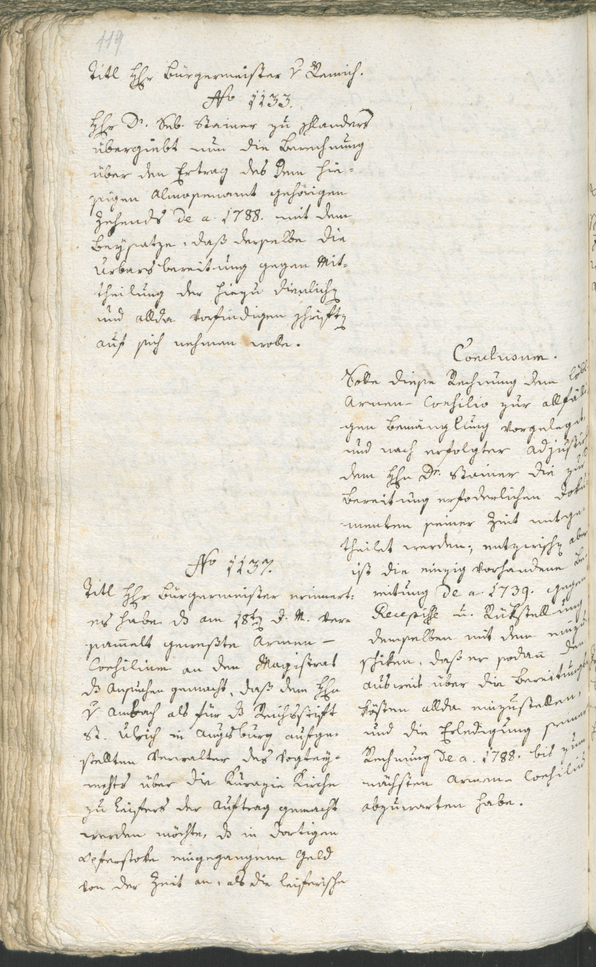 119
Titl Hhr Bürgermeister v Remich.
No 1133.
Hhr Dr. Seb. Stainer zu Schlanders
übergiebt nun die Berechnung
über den Ertrag des dem hie-
sigen Almosenamt gehörigen
Zehends de a. 1788. mit dem
Beysatze, daß derselbe die
Urbarsbereitung gegen Mit-
theilung der hiezu dienlichen
und allda vorfindigen Schriften
auf sich nehmen wolle.
Conclusum.
Solle diese Rechnung dem löbl
Armen-Consilio zur allfäl
gen Bemänglung vorgelegt
und nach erfolgter Adjustir
dem Hhn Dr. Stainer die zur
Bereitung erforderlichen Doku
menten seiner Zeit mitge-
theilet werden, entzwischen aber
ist die einzig vorhandene Be
reitung de a. 1739. gegen
Recepisse u. Rükstellung
demselben mit dem
schiken, daß er sodann den
Ausweis über die Bereitungs
kösten allda einzustellen,
und die Erledigung seiner
Rechnung de a. 1788. bis zum
nächsten Armen-Consilio
abzuwarten habe.
No 1137.
Titl Hhr Bürgermeister erinnert:
es habe ds am 18ten d. M. ver-
sammelt geweßte Armen-
Consilium an den Magistrat
ds Ansuchen gemacht, daß dem Hhn
v Ambach als für ds Reichsstift
St. Ulrich in Augsburg aufge-
stellten Verwalter des Vogtey-
rechts über die Kurazie Kirche
zu Leifers der Auftrag gemacht
werden möchte, ds in dortigen
Opferstoke eingegangene Geld
von der Zeit an, als die leiferische